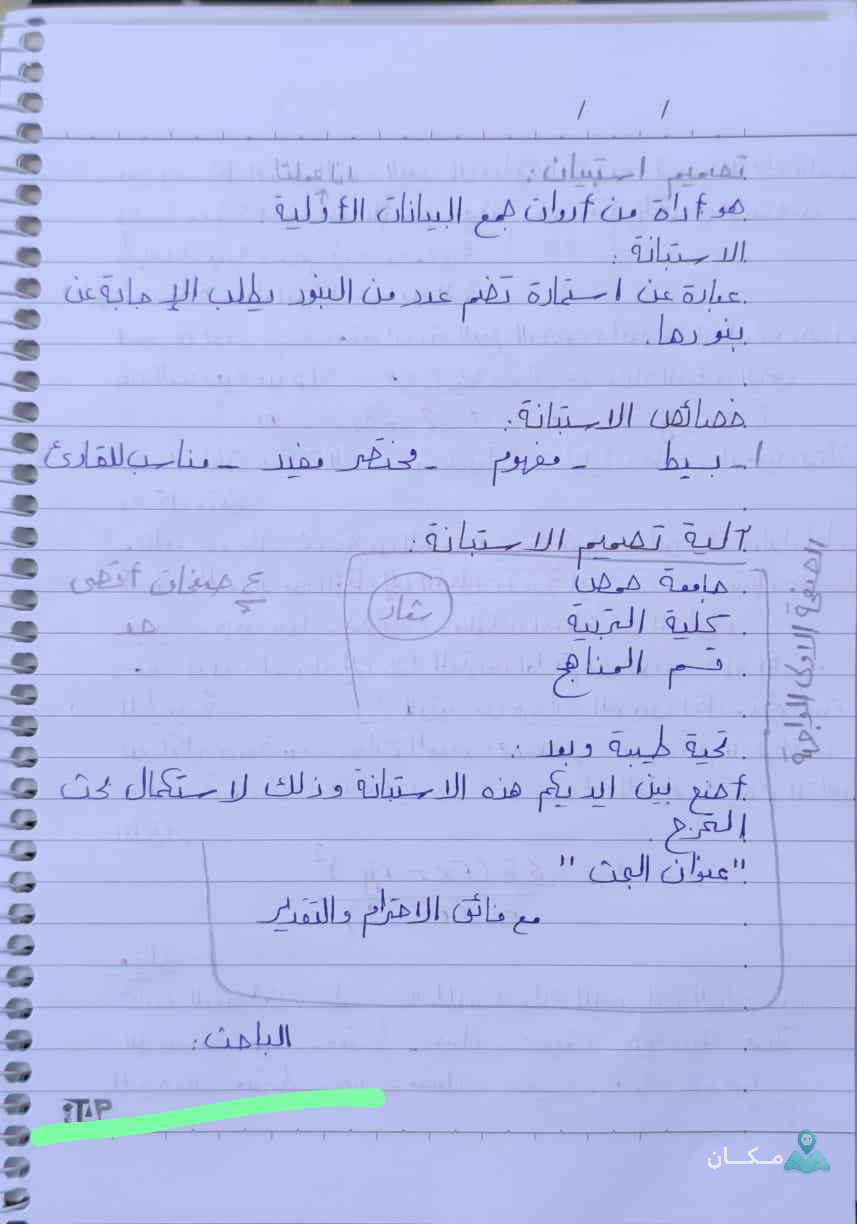 / /
تصميم استبيان: لماذا عملنا
هو أداة من أدوات جمع البيانات الأولية
الاستبانة:
عبارة عن استمارة تضم عدد من البنود يطلب الإجابة عن
بنودها.
خصائص الاستبانة:
1- بسيط - مفهوم - مختصر مفيد - مناسب للقارئ
آلية تصميم الاستبانة:
جامعة حمص
شعار
4 صفحات أقصى
حد
كلية التربية
قسم المناهج
الصفحة الأولى الواجهة
تحية طيبة وبعد:
أضع بين ايديكم هذه الاستبانة وذلك لاستكمال بحث
التخرج
"عنوان البحث"
مع فائق الاحترام والتقدير
الباحث:
iTAP
مكان